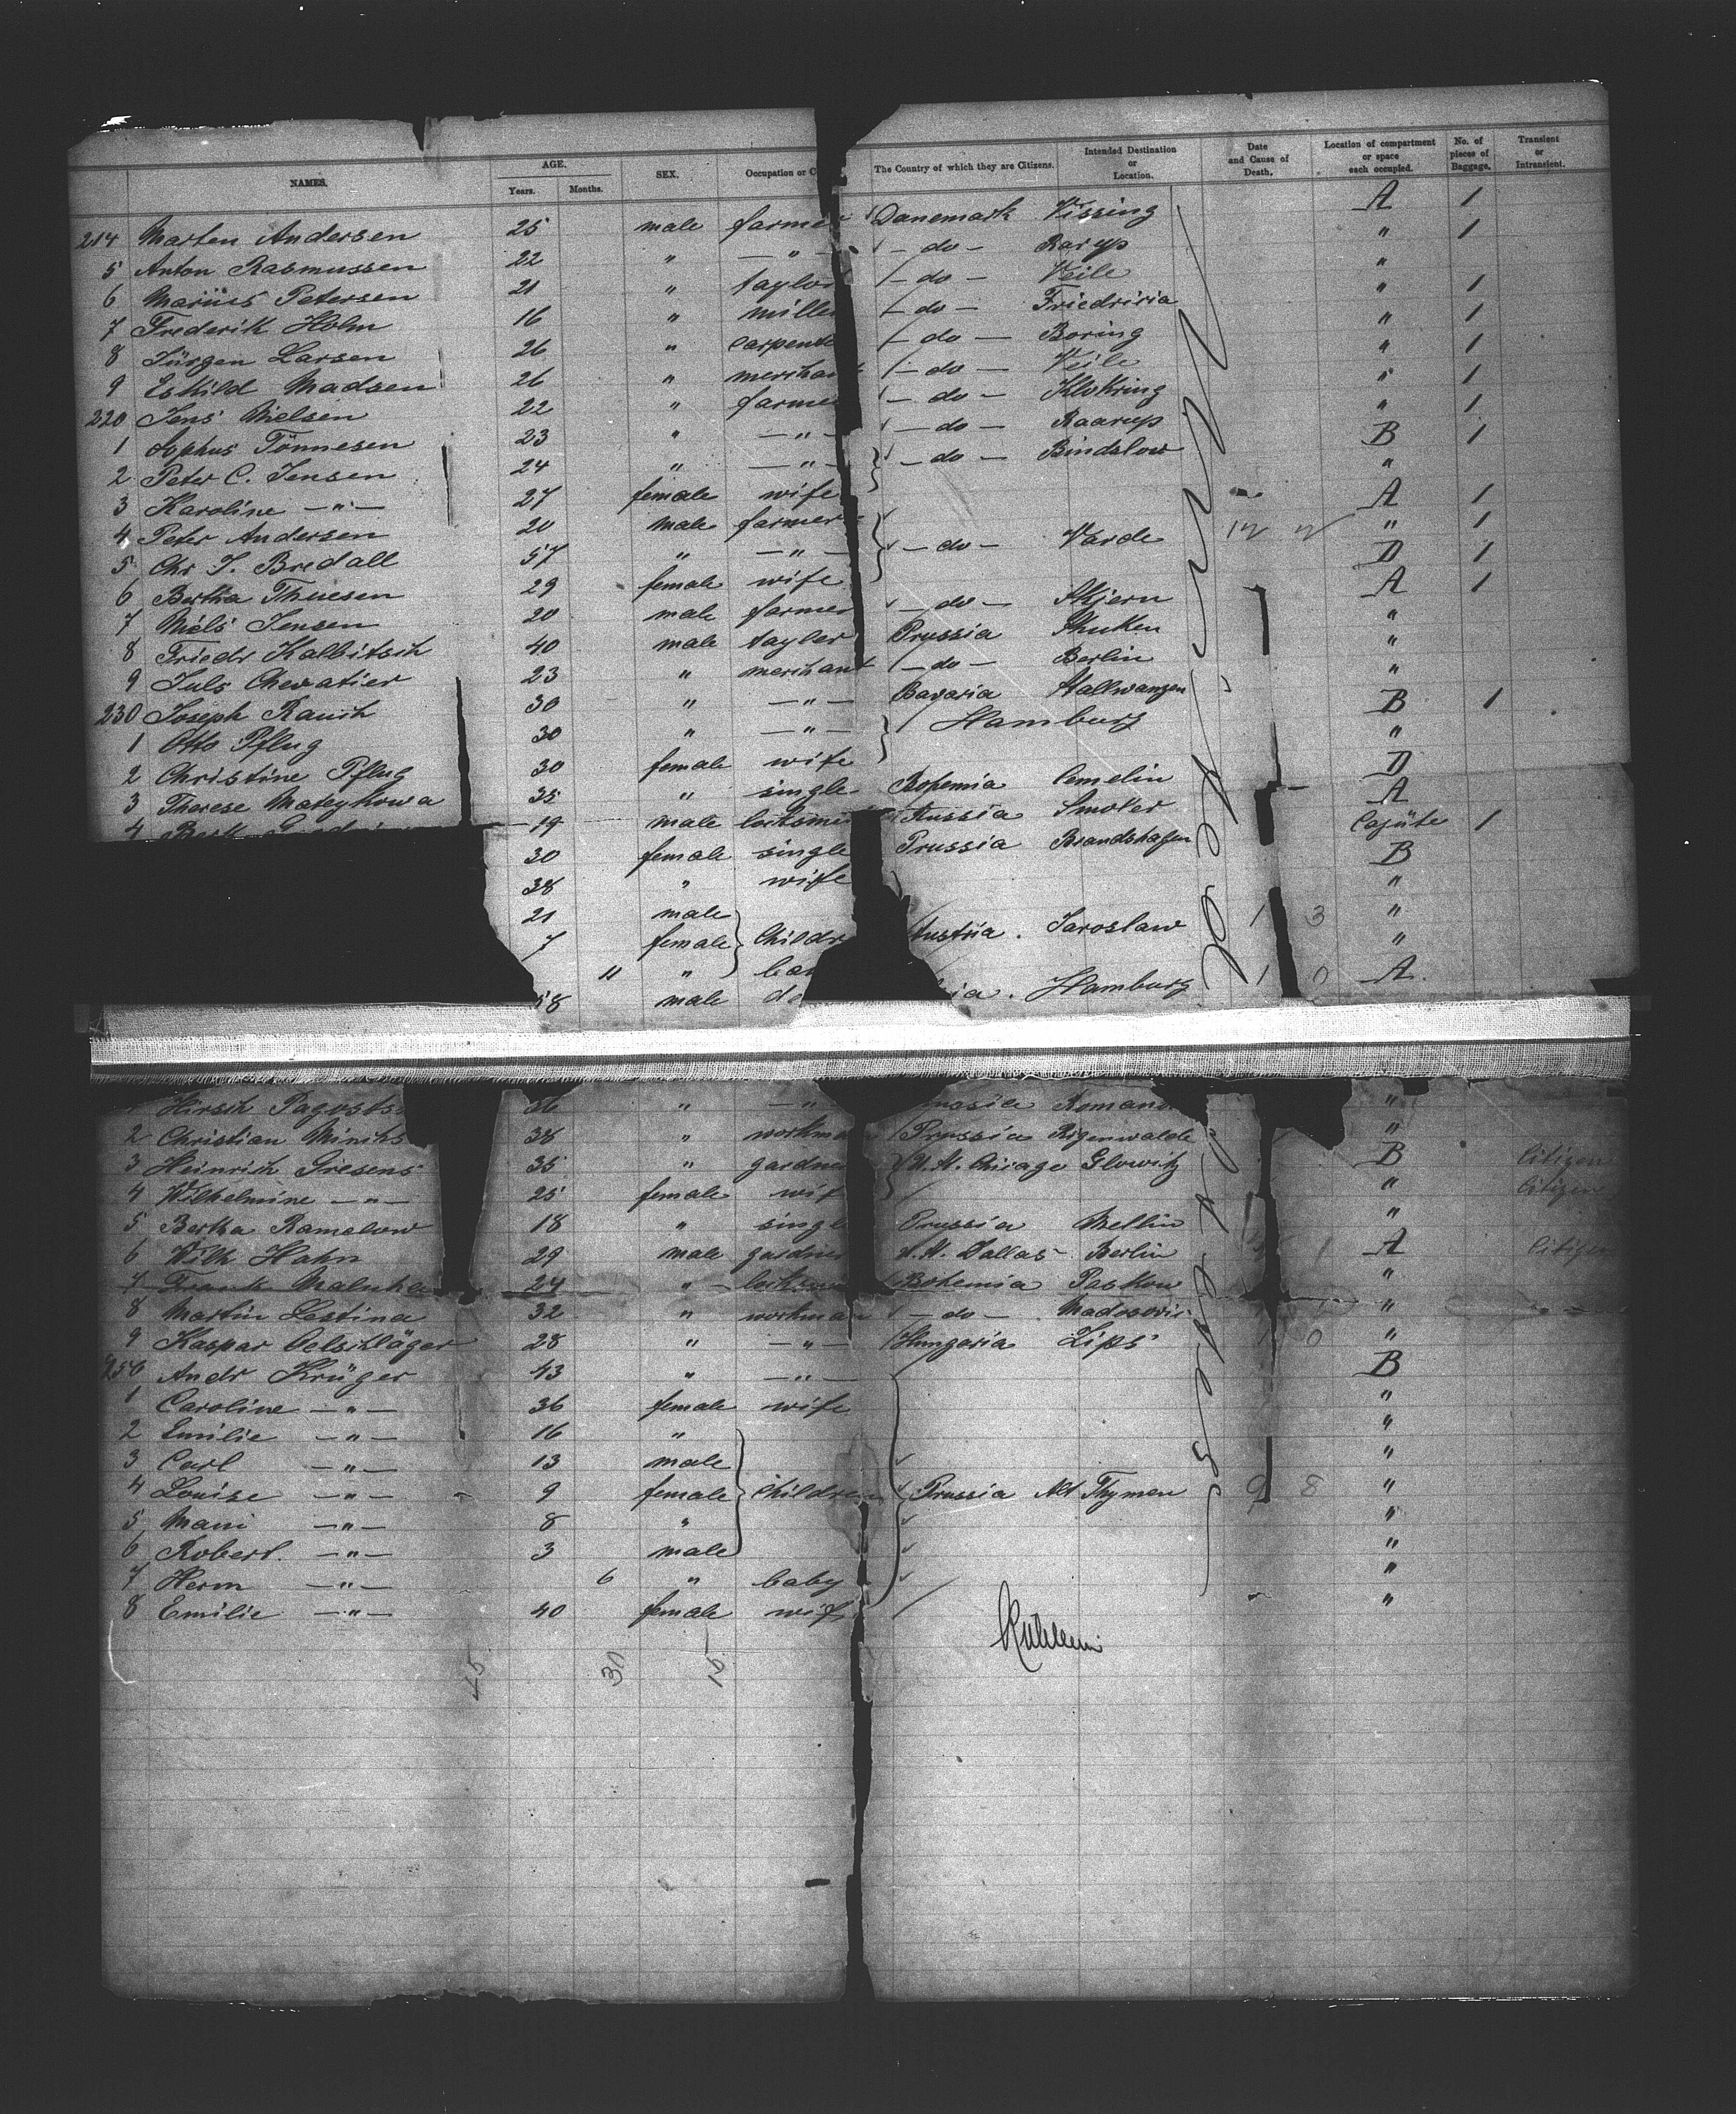 NAMES. AGE. Years. Months. SEX. Occupation or C The Country of which they are Citizens. Intended Destination or Location. Date and Cause of Death. Location of compartment or space each occupied. No. of pieces of Baggage. Transient or Intransient.
214 Marten Andersen 25 male farmer Danemark Vissing A 1
5 Anton Rasmussen 22 " — " — — do — Rarup " 1
6 Marius Petersen 21 " taylor — do — Veile "
7 Frederik Holm 16 " miller — do — Friedriria " 1
8 Jürgen Larsen 26 " carpente — do — Boring " 1
9 Eskild Madsen 26 " merchant — do — Veile " 1
220 Jens Nielsen 22 " farmer — do — Klokring " 1
1 Sophus Tönnesen 23 " — " — — do — Raarup " 1
2 Peter C. Jensen 24 " — " — — do — Bindslow B 1
3 Karoline — " — 27 female wife "
4 Peter Andersen 20 male farmer A 1
5 Chr J. Bredall 57 " — " — — do — Varde " 1
6 Bertha Thuesen 29 female wife D 1
7 Niels Jensen 20 male farmer — do — Skjern A 1
8 Friedr Kalbitsch 40 male tayler Prussia Stuken "
9 Juls Chevatier 23 " merchant — do — Berlin "
230 Joseph Rauch 30 " — " — Bavaria Stallwangen "
1 Otto Pflug 30 " — " — Hamburg B 1
2 Christine Pflug 30 female wife "
3 Therese Mateykowa 35 " single Bohemia Cemelin D
4 19 male locksmi Russia Smoker A
30 female single Prussia Brandshagen Cajüte 1
38 " wife B
21 male "
7 female Childr Austria. Jaroslaw 1 3 "
11 " "
58 male ia. Hamburg 1 0 A.
Hirsch Pagosts 36 " — " Romano "
2 Christian Minchs 38 " workman Prussia Rigenwalde "
3 Heinrich Gresens 35 " gardner U. St. Chicago Glowitz B Citizen
4 Wilhelmine — " — 25 female wife " Citizen
5 Bertha Ramelow 18 " single Prussia Mellin "
6 Wilh Hahn 29 male gardner U. St. Dallas Berlin A Citizen
7 Frank Malnke 24 " locksm Bohemia Paskow "
8 Martin Lestina 32 " workman — do — Madosovic "
9 Kaspar Oelschläger 28 " — " — Hungaria Zips 1 0 "
250 Andr Krüger 43 " — " — B
1 Caroline — " — 36 female wife "
2 Emilie — " — 16 " "
3 Carl — " — 13 male "
4 Louise — " — 9 female Children Prussia Alt Thymen 9 8 "
5 Mari — " — 8 " "
6 Robert. — " — 3 male "
7 Herm — " — 6 " baby "
8 Emilie — " — 40 female wife "
45 30 15